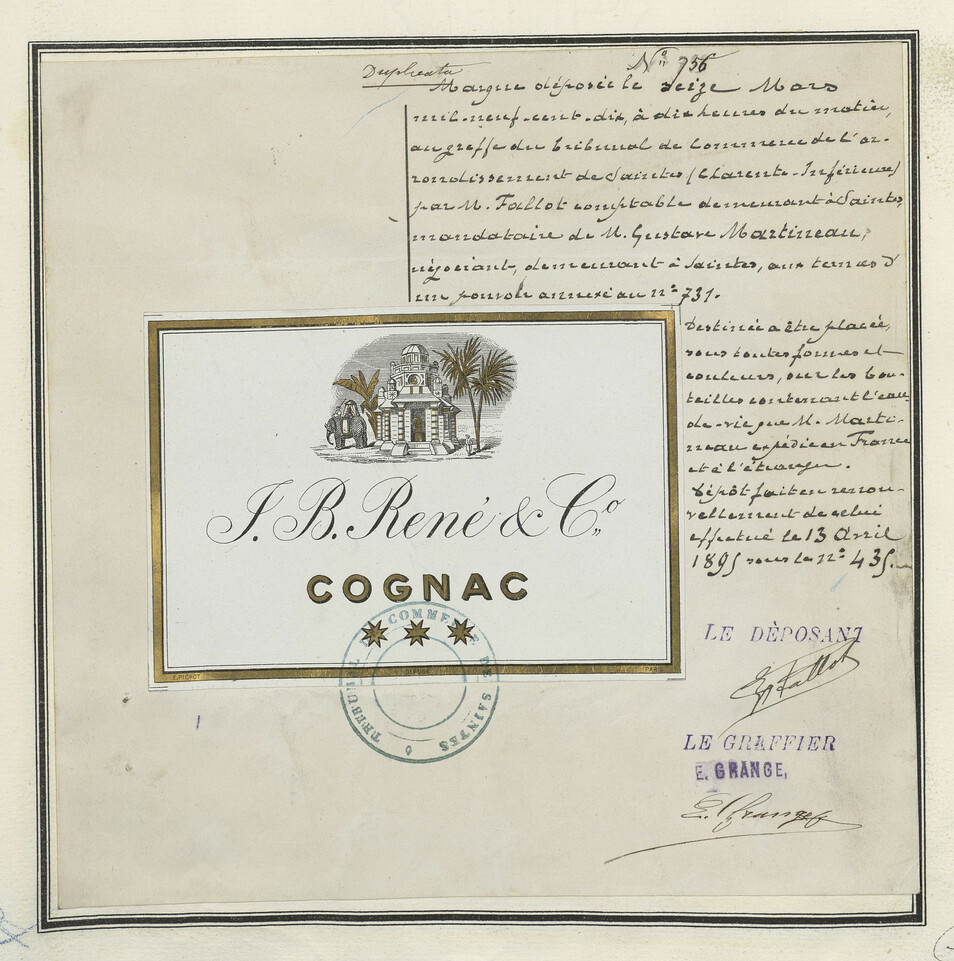 Duplicata
Nº 736
Marque déposée le seize Mars
mil-neuf-cent-dix, à dix heures du matin,
au greffe du tribunal de Commerce de l'ar-
rondissement de Saintes (Charente-Inférieure)
par M. Fallot comptable demeurant à Saintes,
mandataire de M. Gustave Martineau,
négociant, demeurant à Saintes, aux termes d'
un pouvoir annexé au nº 731.
Destinée a être placée,
sous toutes formes et
couleurs, sur les bou-
teilles contenant l'eau-
de-vie que M. Marti-
neau expédie en France
et à l'étranger.
Dépôt fait en renou-
vellement de celui
effectué le 13 Avril
1895 sous le nº 435.
J. B. René & Cº
COGNAC
TRIBUNAL DE COMMERCE DE SAINTES
E. PICHOT
DÉPOSÉ
PARIS
LE DÈPOSANT
E. Fallot
LE GREFFIER
E. GRANGE,
E. Grange